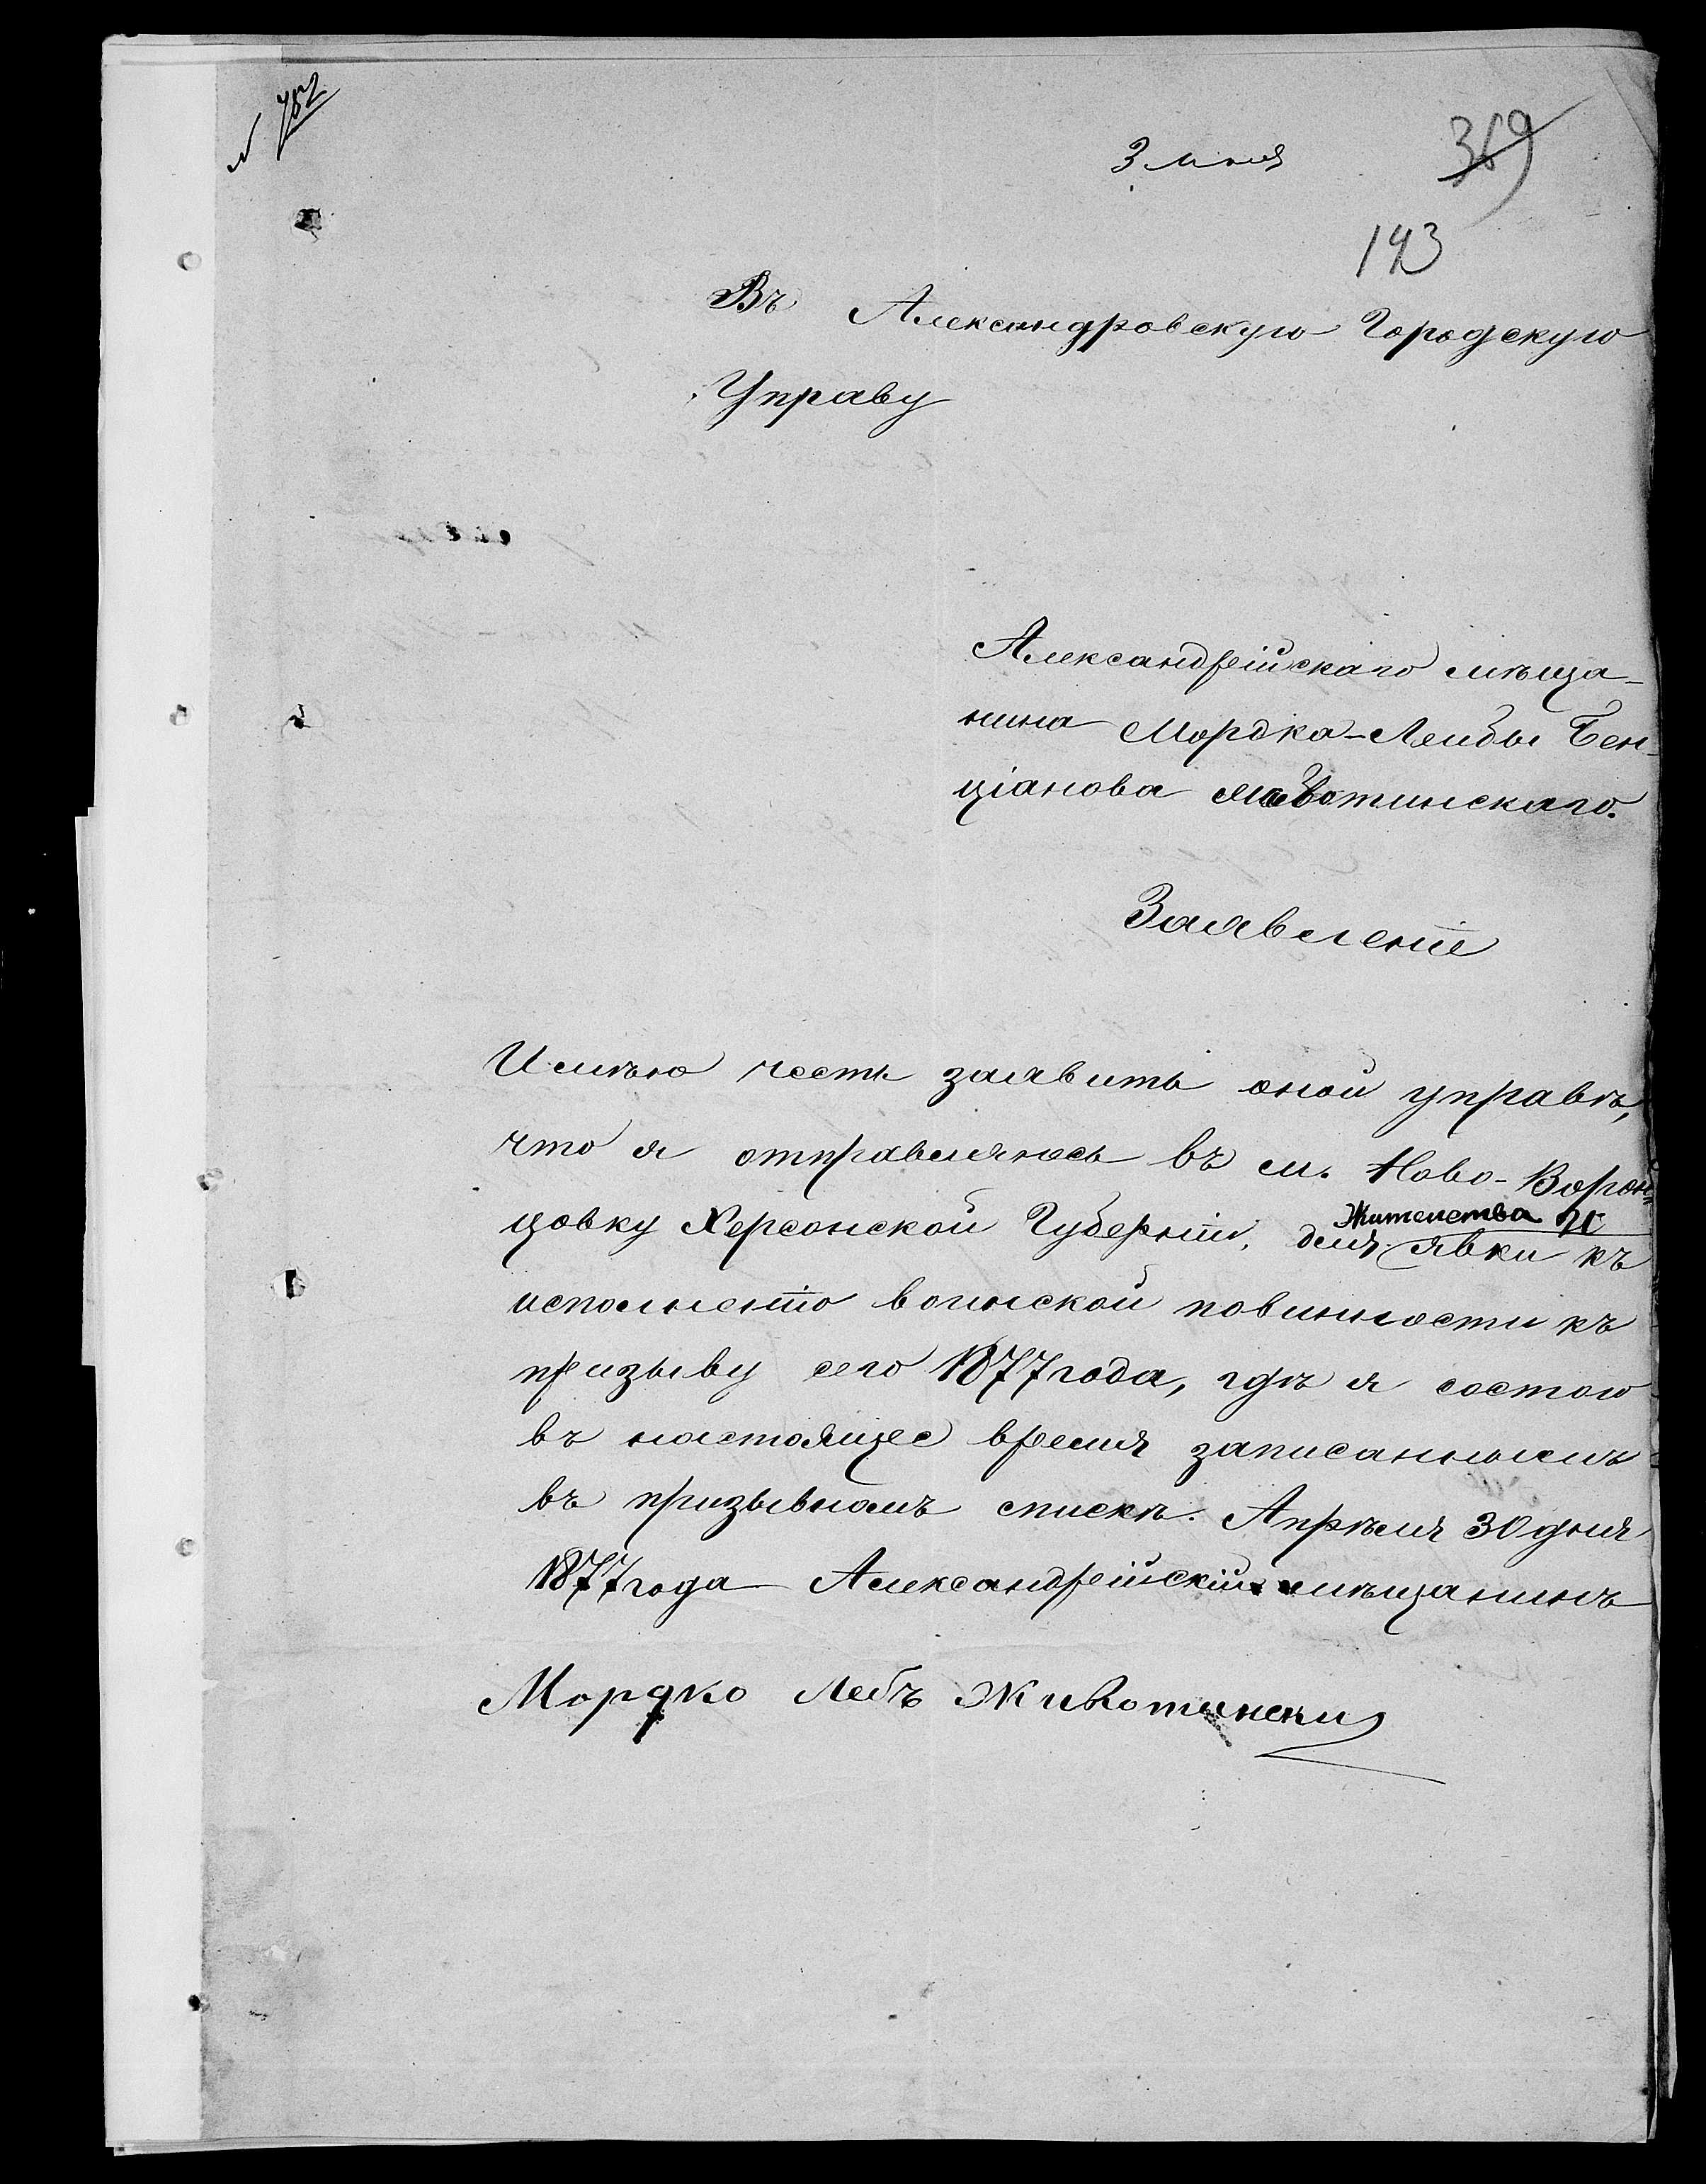 N 752
3 мая
369
193
Въ Александровскую Городскую
Управу
Александрійскаго мѣща-
нина Мордка-Лейбы Бен-
ціанова
Заявленіе
Имѣю честь заявить оной управѣ,
что я отправляюсь въ м. Ново-Ворон-
Жительства и
цовку Херсонской Губерніи, для явки къ
исполненію воинской повинности къ
призыву сего 1877 года, гдѣ я состою
въ настоящее время записаннымъ
въ призывномъ спискѣ. Апрѣля 30 дня
1877 года Александрійскій мѣщанинъ
Мордко Лебъ Животински